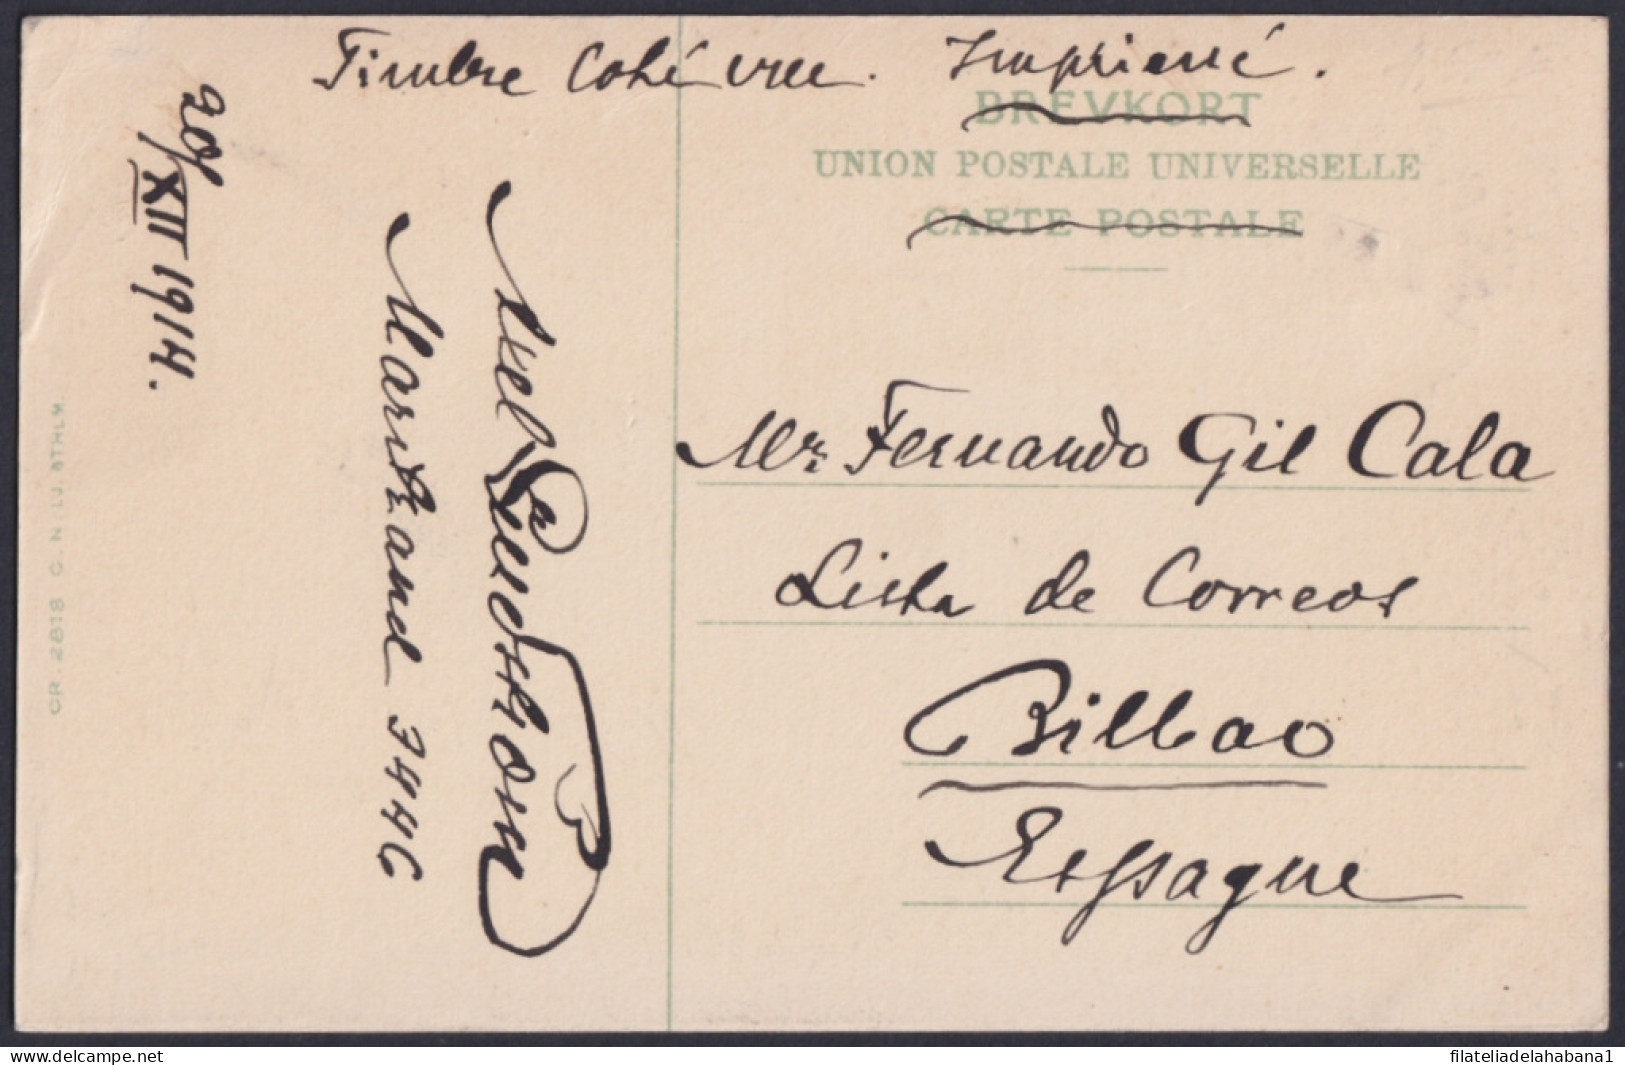 Timbre Coté vue. Imprimé.
BREVKORT
UNION POSTALE UNIVERSELLE
CARTE POSTALE
20/XII 1914.
Axel
Marstrand 3446
Mr. Fernando Gil Cala
Lista de Correos
Bilbao
Espagne
CR. 2818 C. N:s LJ. STHLM
delcampe.net
filateliadelahabana1